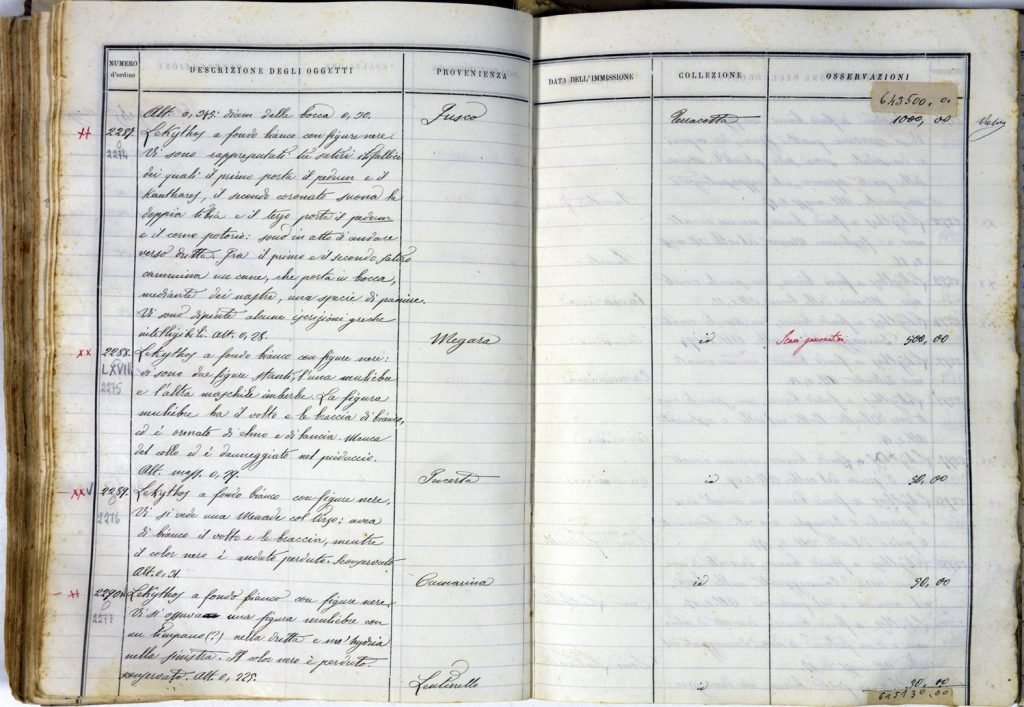 NUMERO d'ordine DESCRIZIONE DEGLI OGGETTI PROVENIENZA DATA DELL'IMMISSIONE COLLEZIONE OSSERVAZIONI
643500,00
Alt. 0,345: diam della bocca 0,30. Fusco Terracotta 1000,00
2287. Lekythos a fondo bianco con figure nere.
2274 Vi sono rappresentati tre satiri itifallici
dei quali il primo porta il pedum e il
Kantharos, il secondo coronato suona la
doppia tibia e il terzo porta il pedum
e il corno potorio: sono in atto d'andare
verso dritta. Fra il primo e il secondo satiro
cammina un cane, che porta in bocca,
mediante dei nastri, una specie di paniere.
Vi sono dipinte alcune iscrizioni greche
intelligibili. Alt. 0,28. Megara id 500,00
xx 2288. Lekythos a fondo bianco con figure nere:
LXVIII vi sono due figure stanti, l'una muliebre
2275 e l'altra maschile imberbe. La figura
muliebre ha il volto e le braccia di bianco,
ed è ornata di elmo e di lancia. Manca
del collo ed è danneggiato nel pieduccio.
Alt. mass. 0,19. Incerta id 50,00
xx V 2289. Lekythos a fondo bianco con figure nere.
2276 Vi si vede una Menade col tirso; avea
di bianco il volto e le braccia, mentre
il color nero è andato perduto. Sconservato
Alt. 0,21. Camarina id 50,00
2290. Lekythos a fondo bianco con figure nere.
2277 Vi si osserva una figura muliebre con
un timpano (?) nella dritta e un'hydria
nella sinistra. Il color nero è perduto.
Sconservato. Alt. 0,225. Lentinello id 30,00
645130,00